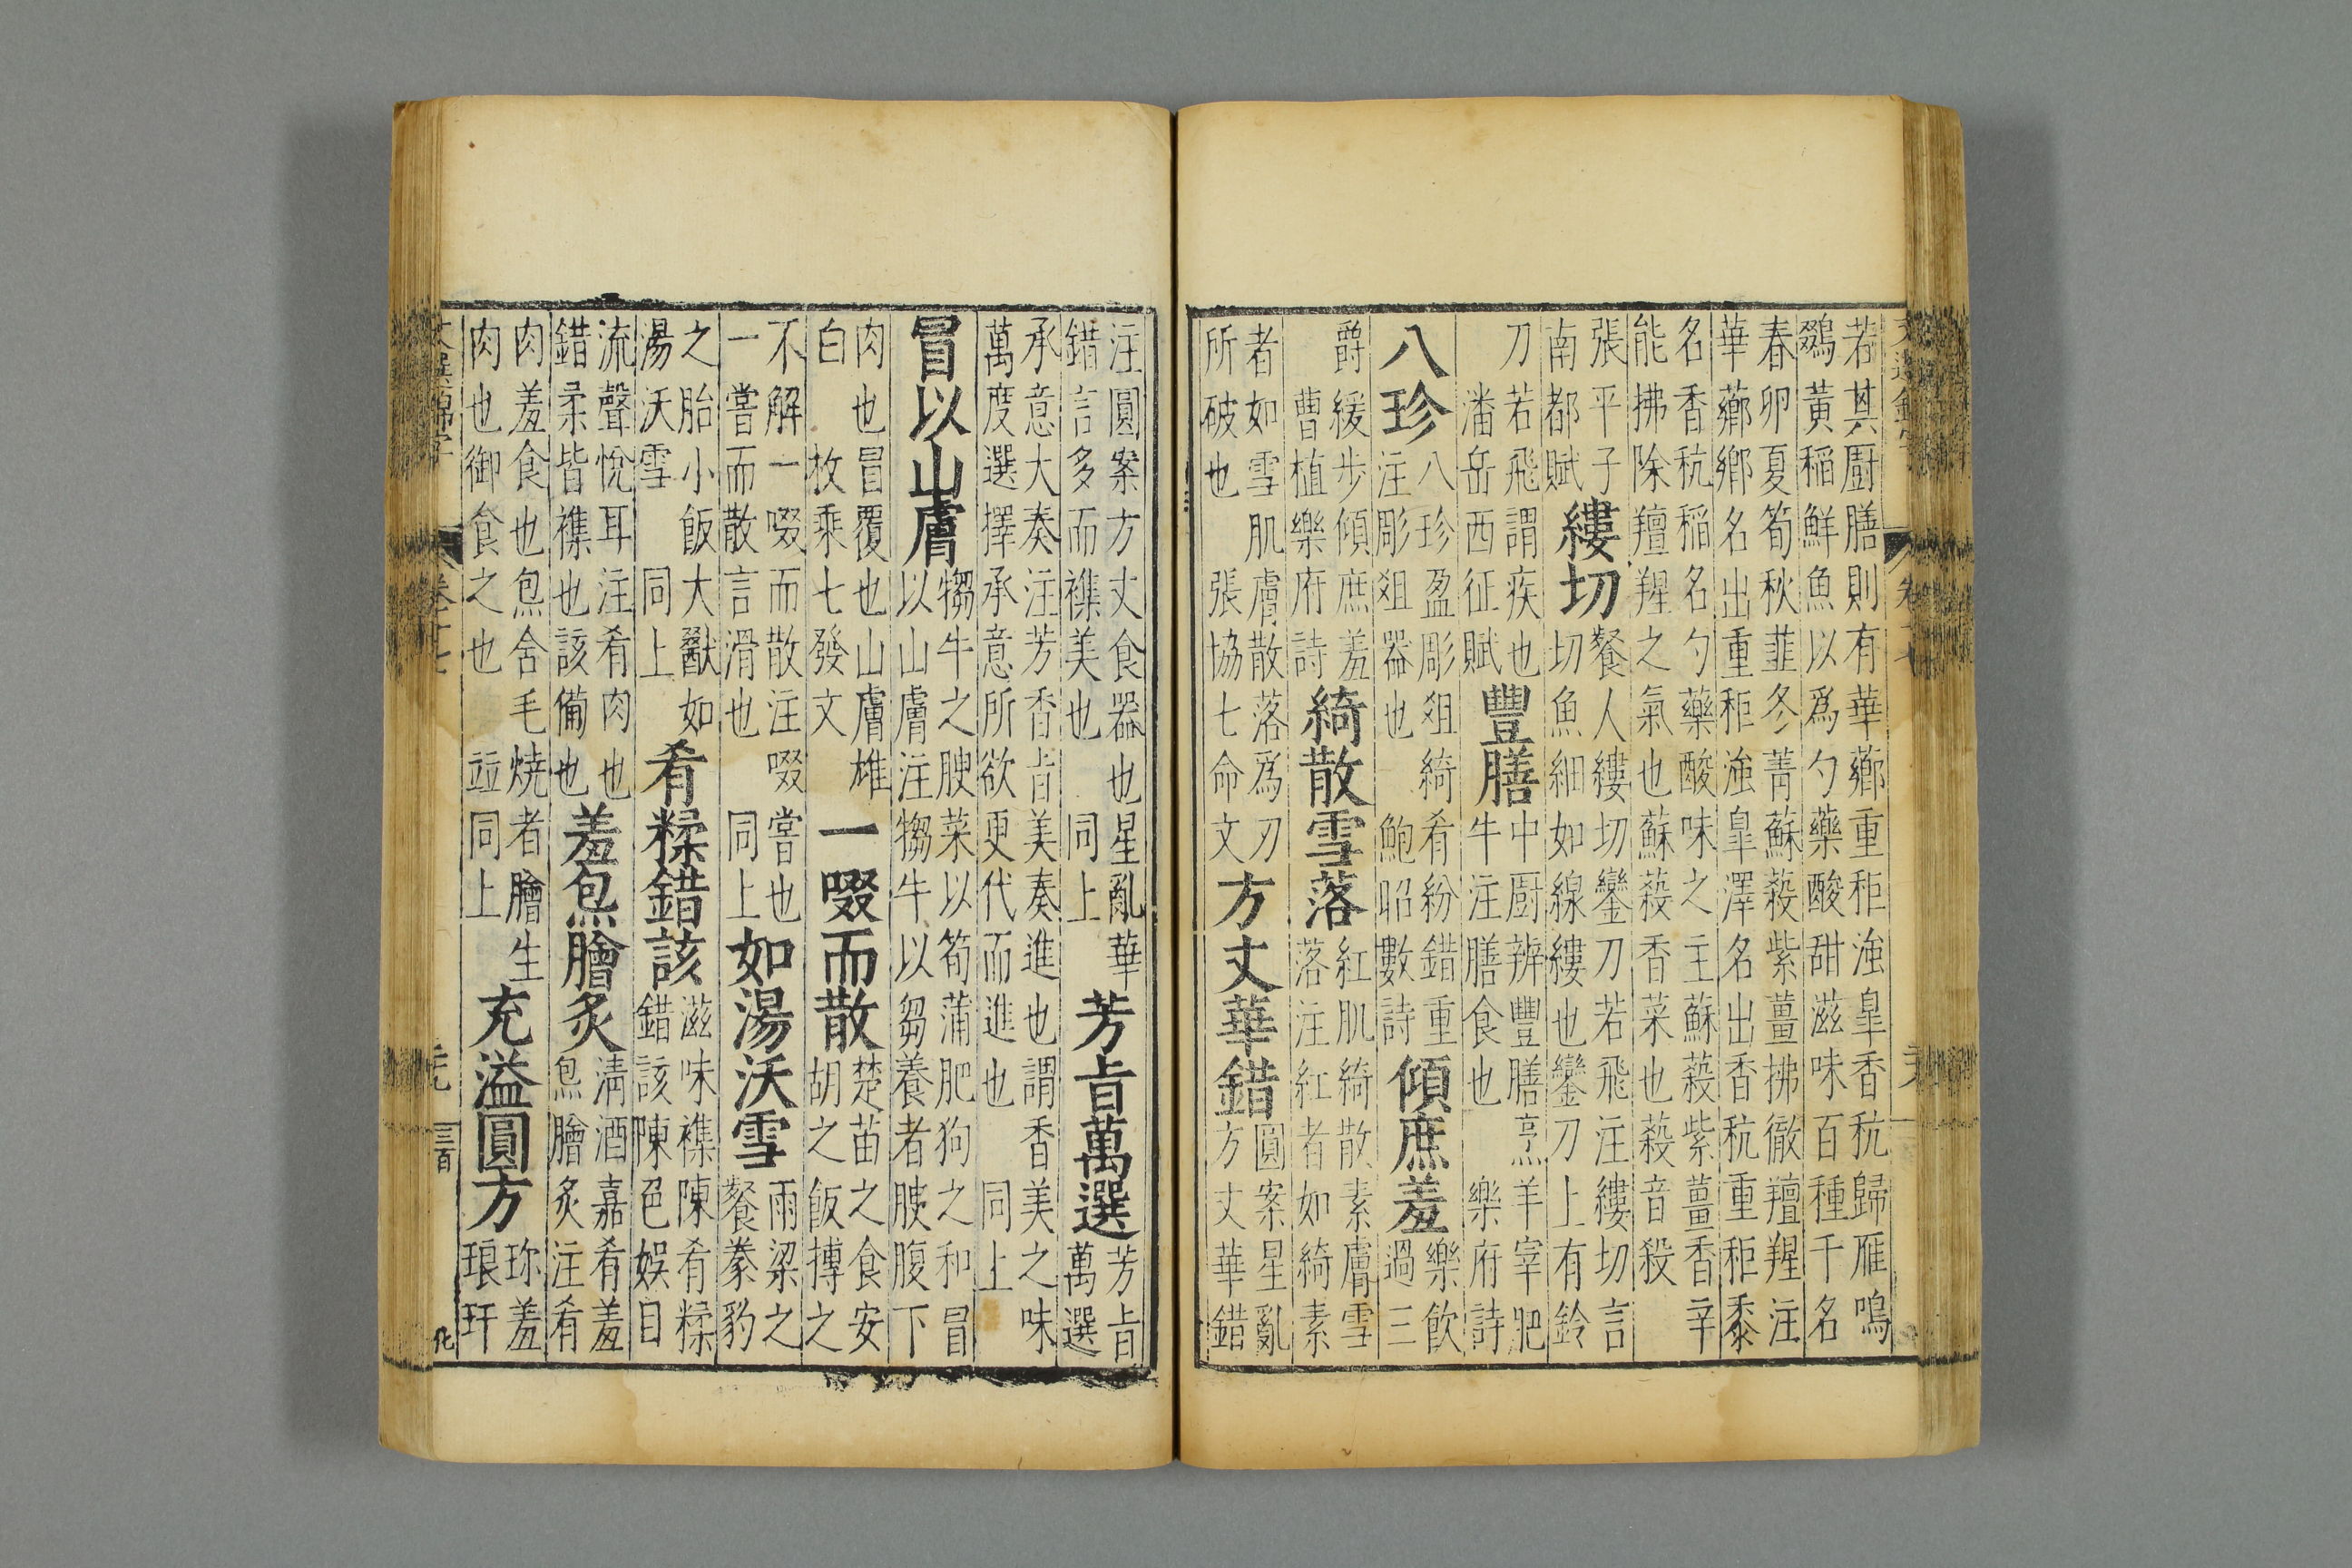 若其廚膳則有華薌重秬湩皐香秔歸雁鳴
鵽黃稻鮮魚以爲勺藥酸甜滋味百種千名
春卵夏筍秋韭冬菁蘇蔱紫薑拂徹羶羥注
華薌鄉名出重秬湩皐澤名出香秔重秬黍
名香秔稻名勺藥酸味之主蘇蔱紫薑香辛
能拂除羶羥之氣也蘇蔱香菜也蔱音殺
張平子
南都賦
縷切
餐人縷切鑾刀若飛注縷切言
切魚細如線縷也鑾刀上有鈴
刀若飛謂疾也
潘岳西征賦
豐膳
中廚辨豐膳烹羊宰肥
牛注膳食也 樂府詩
八珍
八珍盈彫俎綺肴紛錯重
注彫俎器也 鮑昭數詩
傾庶羞
樂飲
過三
爵緩步傾庶羞
曹植樂府詩
綺散雪落
紅肌綺散素膚雪
落注紅者如綺素
者如雪肌膚散落爲刃
所破也 張協七命文
方丈華錯
圓案星亂
方丈華錯
注圓案方丈食器也星亂華
錯言多而襍美也 同上
芳旨萬選
芳旨
萬選
承意大奏注芳香旨美奏進也謂香美之味
萬度選擇承意所欲更代而進也 同上
冒以山膚
犓牛之腴菜以筍蒲肥狗之和冒
以山膚注犓牛以芻養者腴腹下
肉也冒覆也山膚雄
白 枚乘七發文
一啜而散
楚苗之食安
胡之飯摶之
不解一啜而散注啜嘗也
一嘗而散言滑也 同上
如湯沃雪
雨梁之
餐豢豹
之胎小飯大歠如
湯沃雪 同上
肴糅錯該
滋味襍陳肴糅
錯該陳色娛目
流聲悅耳注肴肉也
錯柔皆襍也該備也
羞炰膾炙
清酒嘉肴羞
炰膾炙注肴
肉羞食也炰含毛燒者膾生
肉也御食之也 竝同上
充溢圓方
珎羞
琅玕
三百